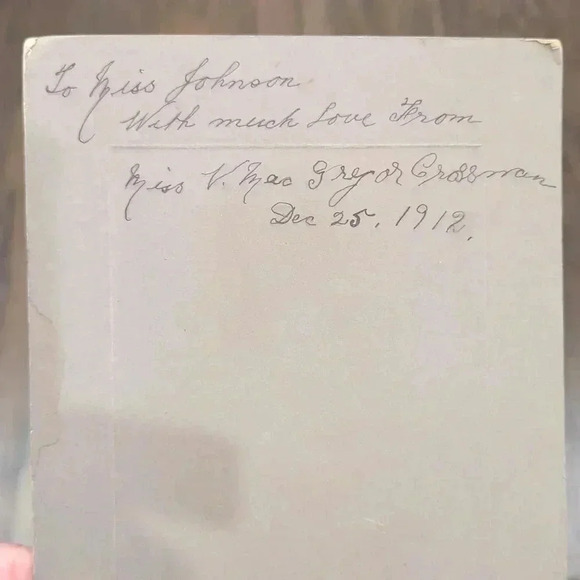 To Miss Johnson
With much Love From
Miss V. Mac Gregor Crossman
Dec 25, 1912.